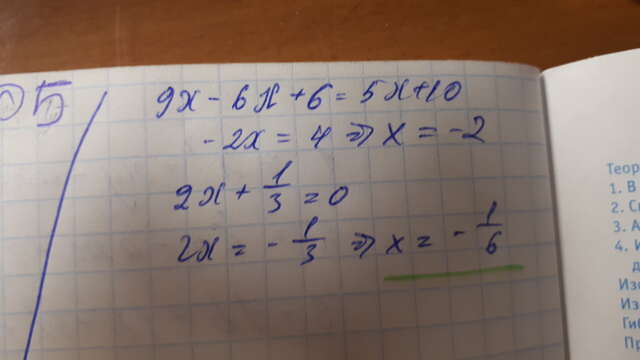 9x - 6x + 6 = 5x + 10
- 2x = 4 => x = -2
2x + 1/3 = 0
2x = - 1/3 => x = - 1/6
Теор
1. В
2. С
3. А
4. И
Д
Из
Из
Ги
Пр